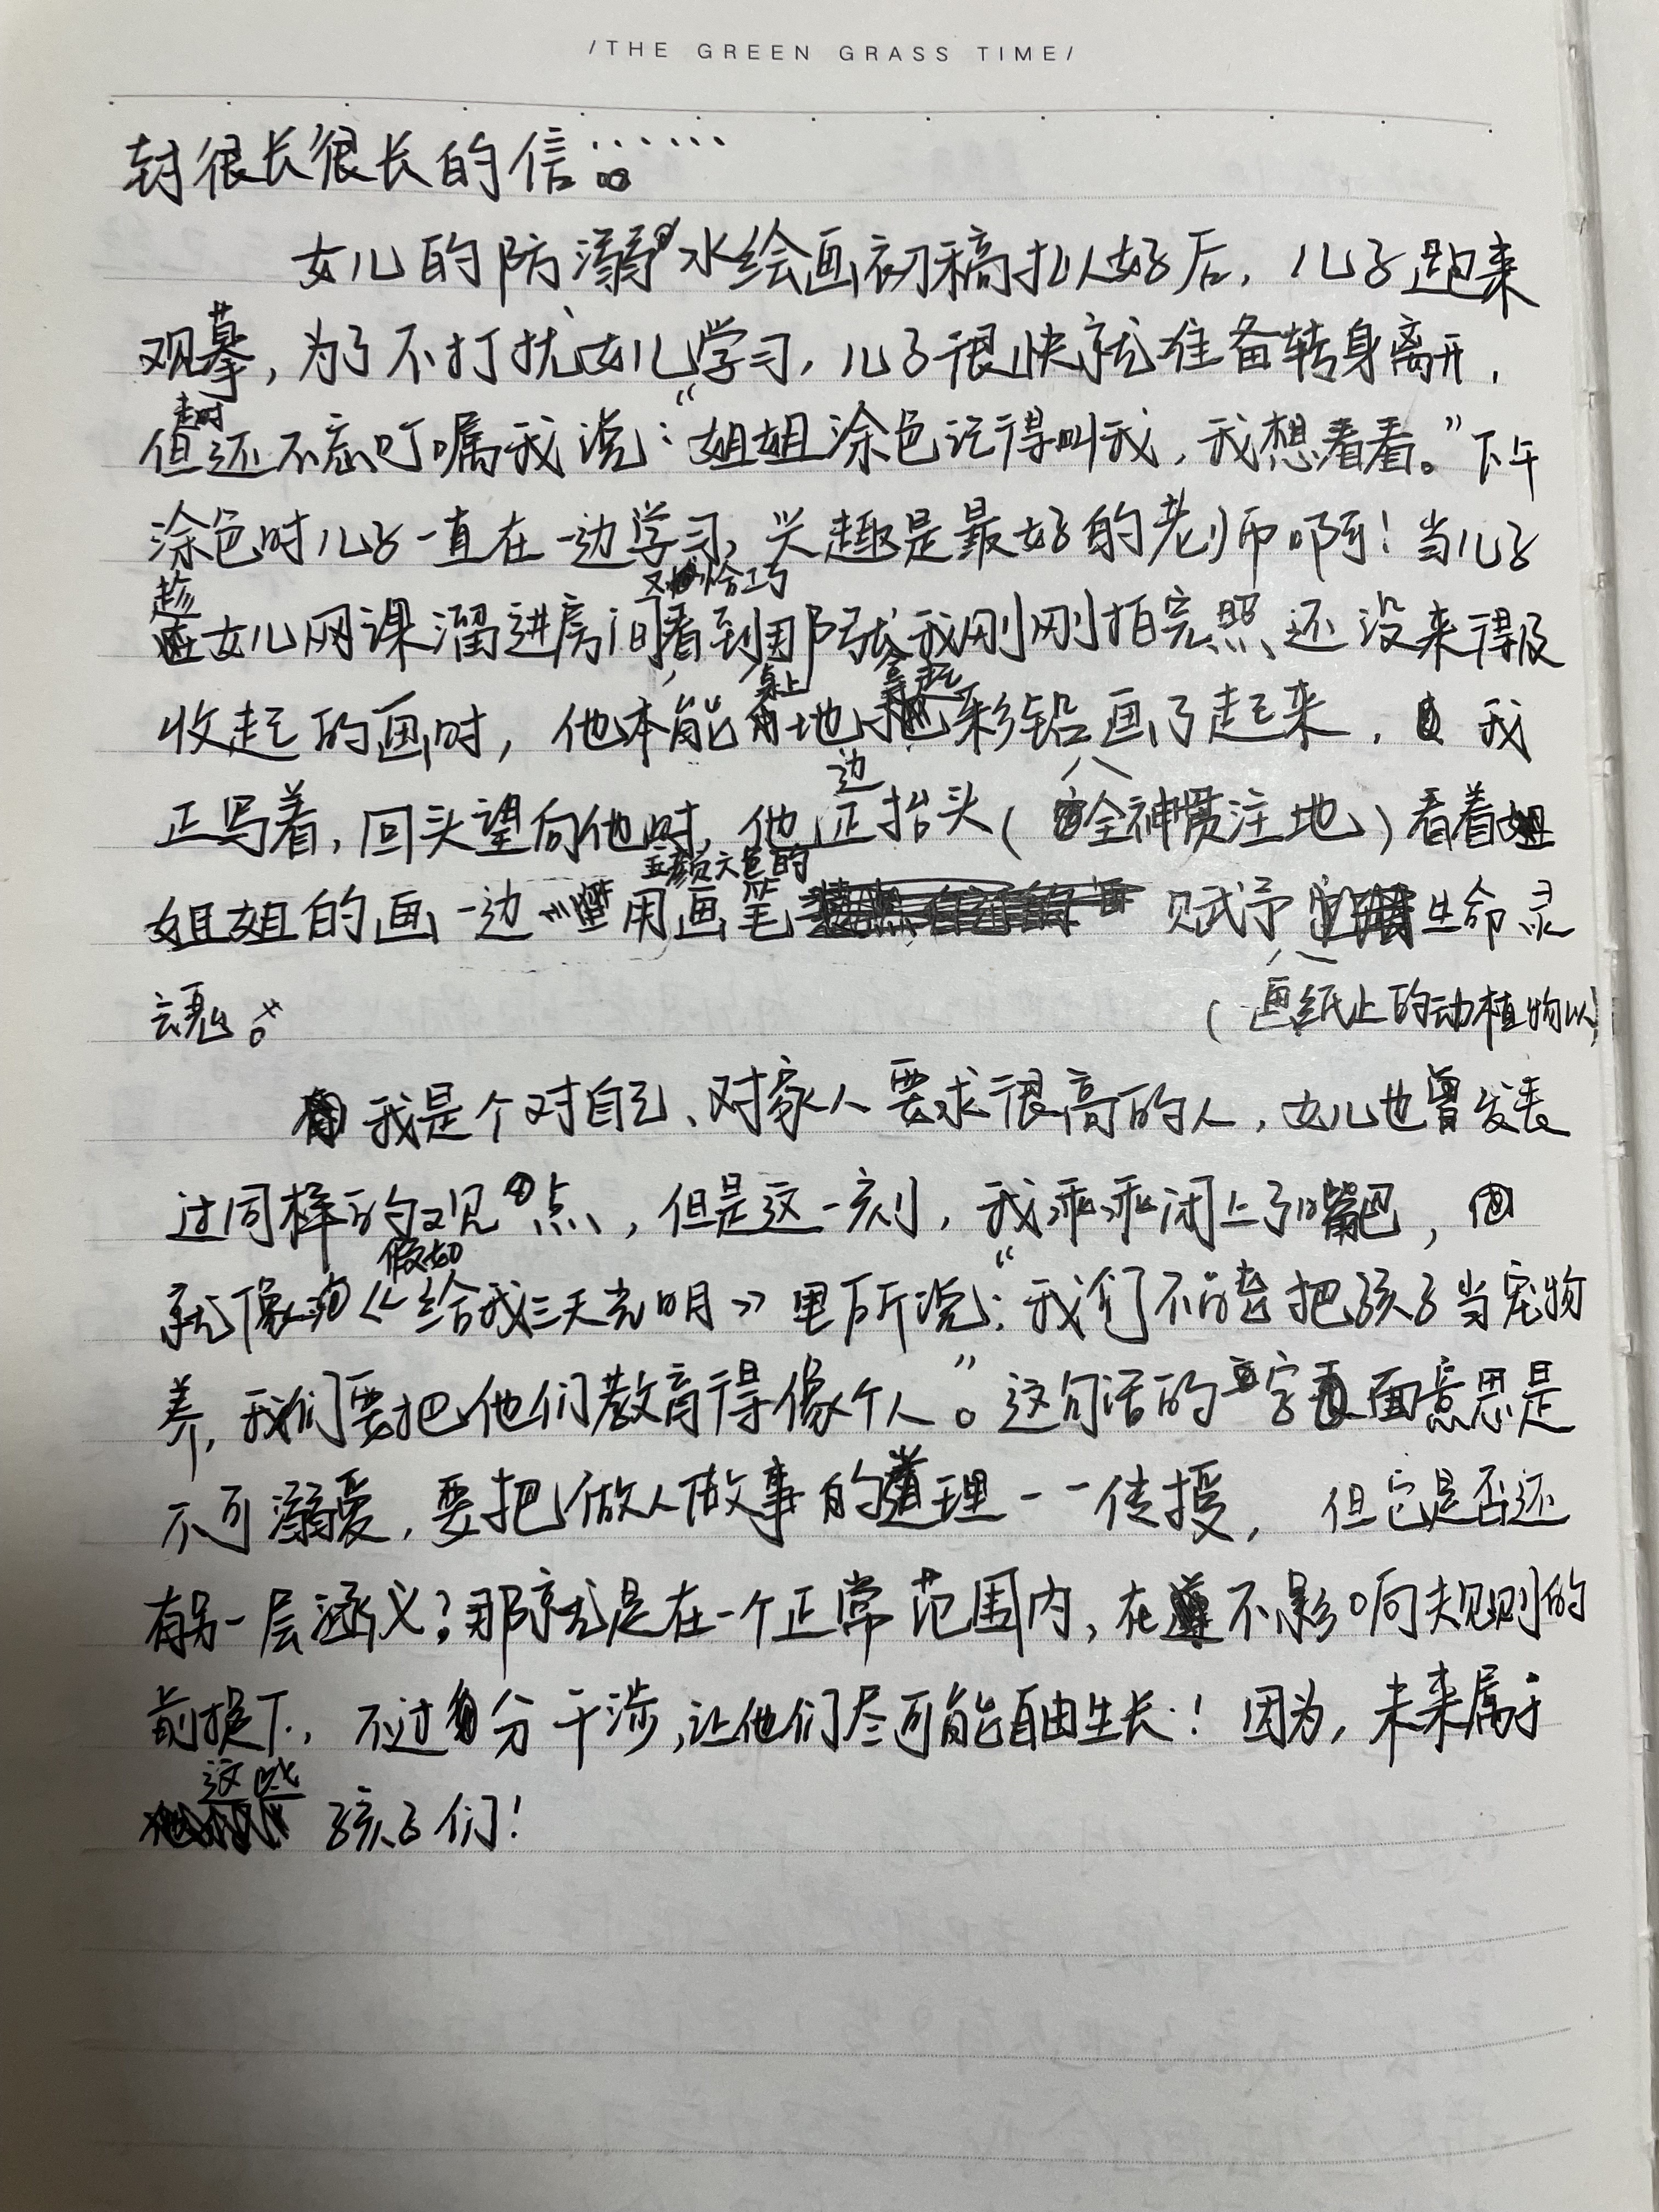 /THE GREEN GRASS TIME/
封很长很长的信……。
女儿的防溺水绘画初稿扎以好后，儿子跑来
观摹，为了不打扰女儿学习，儿子很快就准备转身离开，
但还不忘叮嘱我说：“姐姐涂色记得叫我，我想看看。”下午
涂色时儿子一直在一边学习，兴趣是最好的老师啊！当儿子
趁女儿网课溜进房间，又恰巧看到那张我刚刚拍完照还没来得及
收起的画时，他本能地拿起桌上彩铅画了起来，我
正写着，回头望向他时，他边正抬头（全神贯注地）看着
姐姐的画一边用五颜六色的画笔赋予生命灵
魂。
（画纸上的动植物以）
我是个对自己、对家人要求很高的人，女儿也曾发表
过同样的观点，但是这一刻，我乖乖闭上了嘴巴，
就像《假如给我三天光明》里所说：“我们不能把孩子当宠物
养，我们要把他们教育得像个人”。这句话的字面意思是
不可溺爱，要把做人做事的道理一一传授，但它是否还
有另一层涵义？那就是在一个正常范围内，在不影响规则的
前提下，不过分干涉，让他们尽可能自由生长！因为，未来属于
这些孩子们！